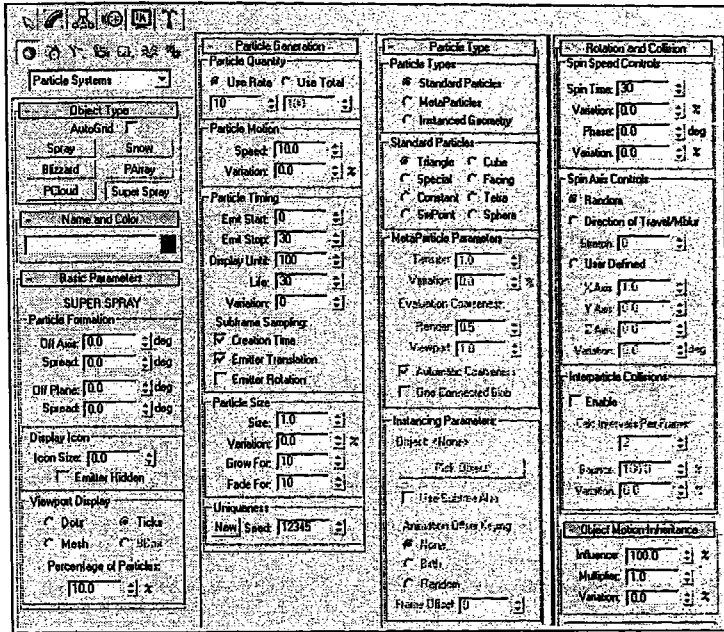 Particle Systems
Object Type
AutoGrid
Spray Snow
Blizzard PArray
PCloud Super Spray
Name and Color
Basic Parameters
SUPER SPRAY
Particle Formation
Off Axis: 0.0 deg
Spread: 0.0 deg
Off Plane: 0.0 deg
Spread: 0.0 deg
Display Icon
Icon Size: 0.0
Emitter Hidden
Viewport Display
Dots Ticks
Mesh BBox
Percentage of Particles:
10.0 %
Particle Generation
Particle Quantity
Use Rate Use Total
10 100
Particle Motion
Speed: 10.0
Variation: 0.0 %
Particle Timing
Emit Start: 0
Emit Stop: 30
Display Until: 100
Life: 30
Variation: 0
Subframe Sampling:
Creation Time
Emitter Translation
Emitter Rotation
Particle Size
Size: 1.0
Variation: 0.0 %
Grow For: 10
Fade For: 10
Uniqueness
New Seed: 12345
Particle Type
Particle Types
Standard Particles
MetaParticles
Instanced Geometry
Standard Particles
Triangle Cube
Special Facing
Constant Tetra
SixPoint Sphere
MetaParticle Parameters
Tension: 1.0
Variation: 0.0 %
Evaluation Coarseness:
Render: 0.5
Viewport: 1.0
Automatic Coarseness
One Connected Blob
Instancing Parameters:
Object: <None>
Pick Object
Use Subtree Also
Animation Offset Keying
None
Birth
Random
Frame Offset: 0
Rotation and Collision
Spin Speed Controls
Spin Time: 30
Variation: 0.0 %
Phase: 0.0 deg
Variation: 0.0 %
Spin Axis Controls
Random
Direction of Travel/Mblur
Stretch: 0
User Defined
X Axis: 1.0
Y Axis: 0.0
Z Axis: 0.0
Variation: 0.0 deg
Interparticle Collisions
Enable
Calc Intervals Per Frame
2
Bounce: 100.0 %
Variation: 0.0 %
Object Motion Inheritance
Influence: 100.0 %
Multiplier: 1.0
Variation: 0.0 %